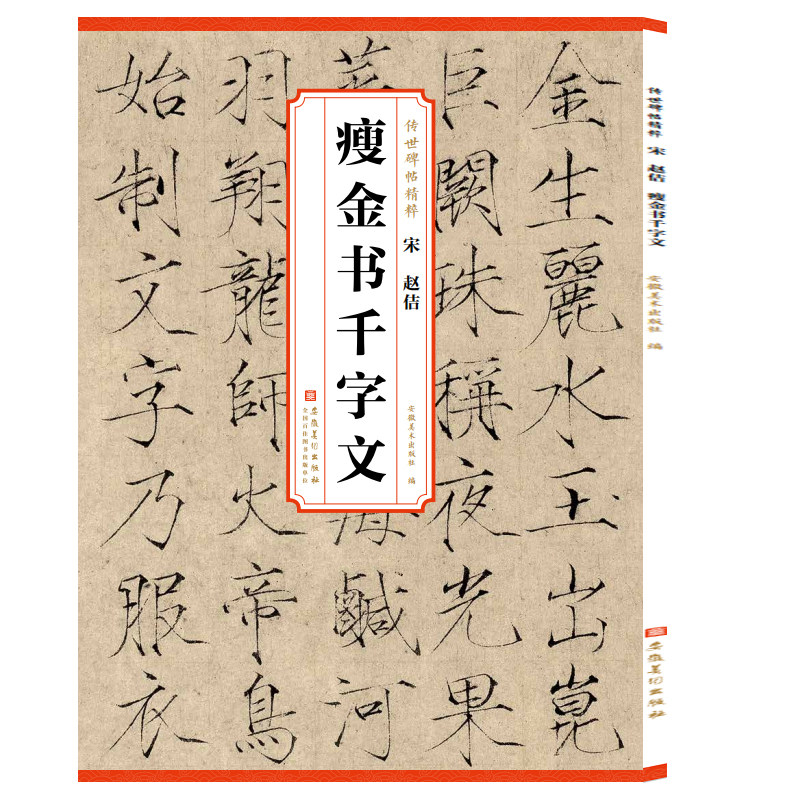 金生麗水玉出崑
巨闕珠稱夜光果
菜
海鹹河
羽翔龍師火帝鳥
始制文字乃服衣
传世碑帖精粹 宋 赵佶
安徽美术出版社 编
瘦金书千字文
安徽美术出版社
全国百佳图书出版单位
传世碑帖精粹 宋 赵佶 瘦金书千字文
安徽美术出版社 编
安徽美术出版社